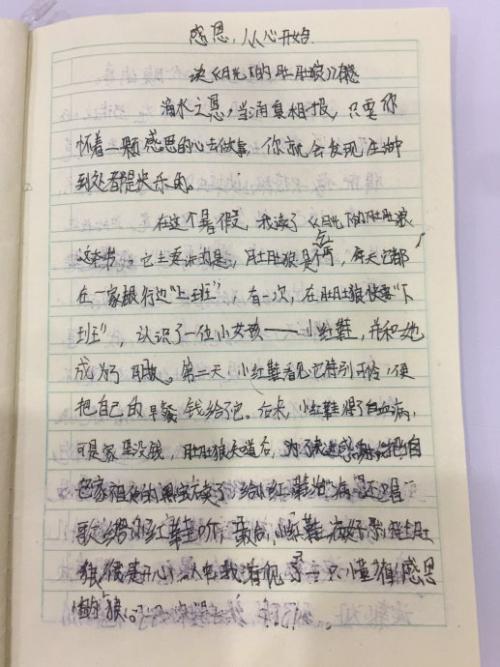 感恩,从心开始
读《月光下的肚肚狼》有感
滴水之恩,当涌泉相报,只要你
怀着一颗感恩的心去做事,你就会发现生活中
到处都是快乐的。
在这个暑假,我读了《月光下的肚肚狼》
这本书,它主要讲的是,肚肚狼是个,每天它都
在一家银行边“上班”,有一次,在肚肚狼快要“下
班”,认识了一位小女孩——小红鞋,并和她
成为了朋友。第二天,小红鞋看见它特别可怜,便
把自己的早餐钱给了它。后来,小红鞋得了白血病,
可是家里没钱,肚肚狼知道后,为了表达感恩,它把自
己家祖传的卖了给小红鞋治病,还唱
歌给小红鞋听,最后,小红鞋病好了,肚肚
狼很开心,从中我看见了一只懂得感恩
的狼。